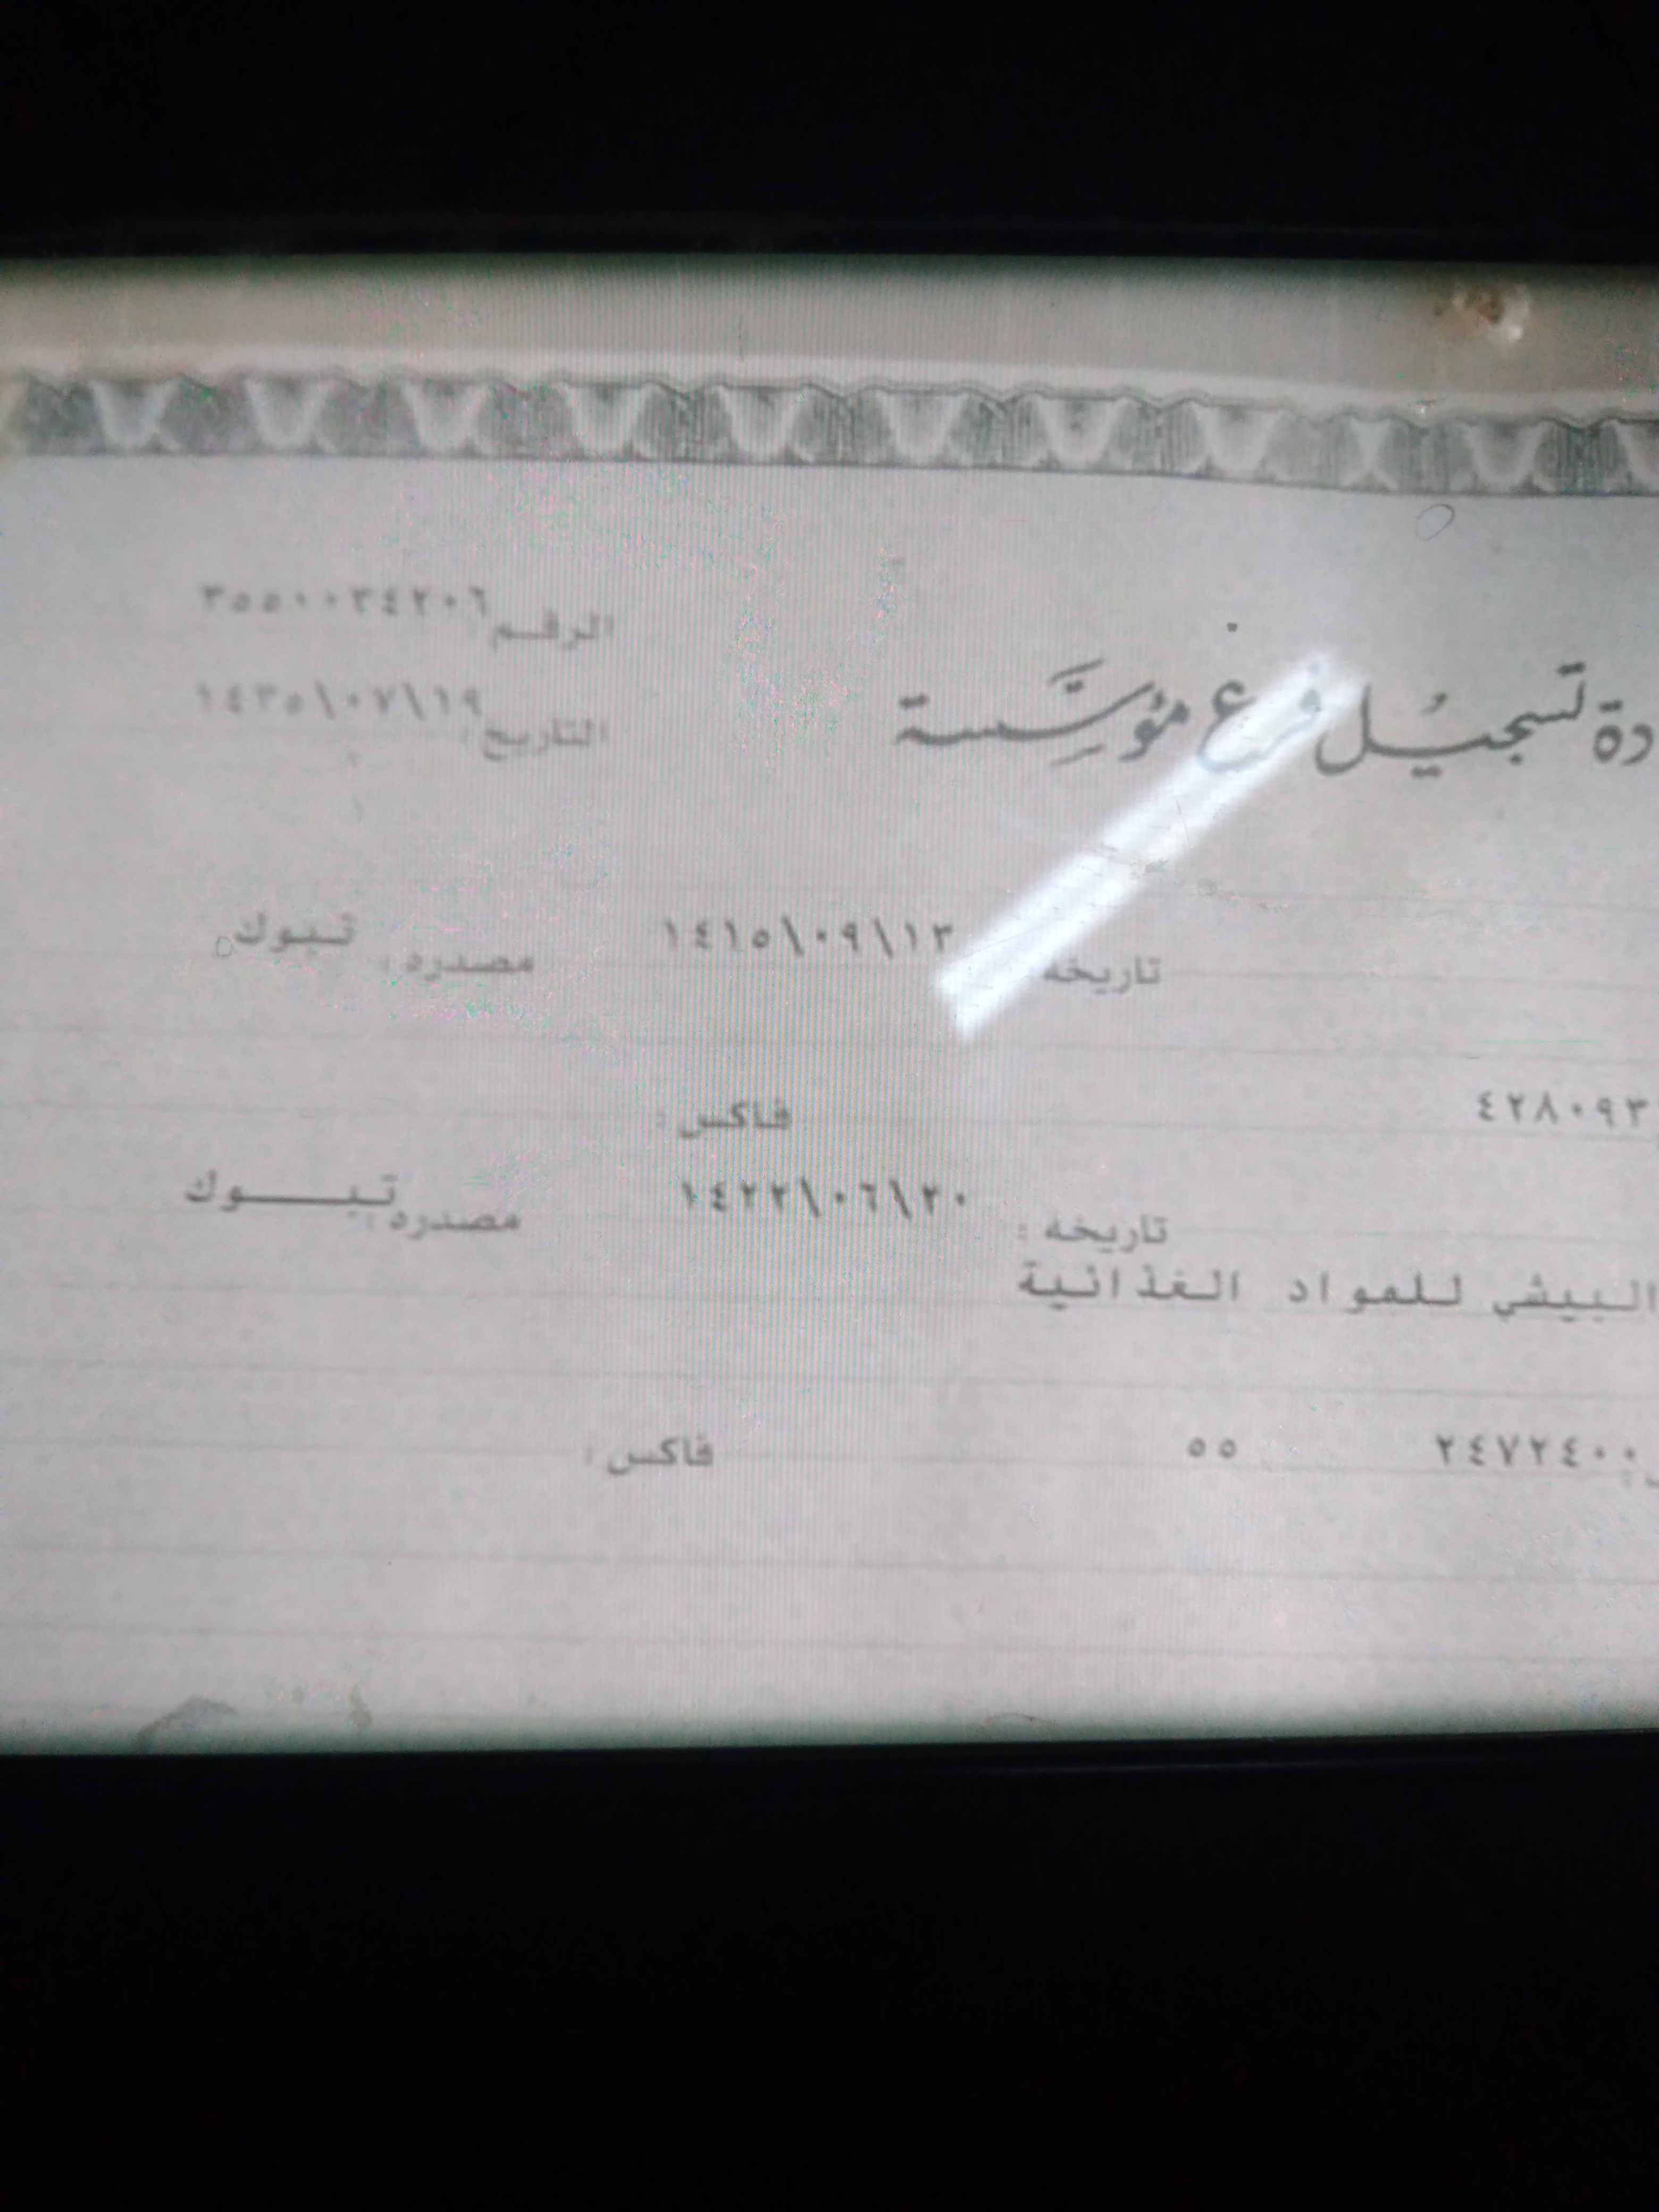 الرقم ٣٥٥٠٠٣٤٢٠٦
دة تسجيل فرع مؤسسة
التاريخ ١٤٣٥\٠٧\١٩
تاريخه ١٤١٥\٠٩\١٣ مصدره : تبوك
٤٢٨٠٩٣ فاكس :
تاريخه : ١٤٢٢\٠٦\٢٠ مصدره : تبوك
البيشي للمواد الغذائية
٢٤٧٢٤٠٠ ٥٥ فاكس :